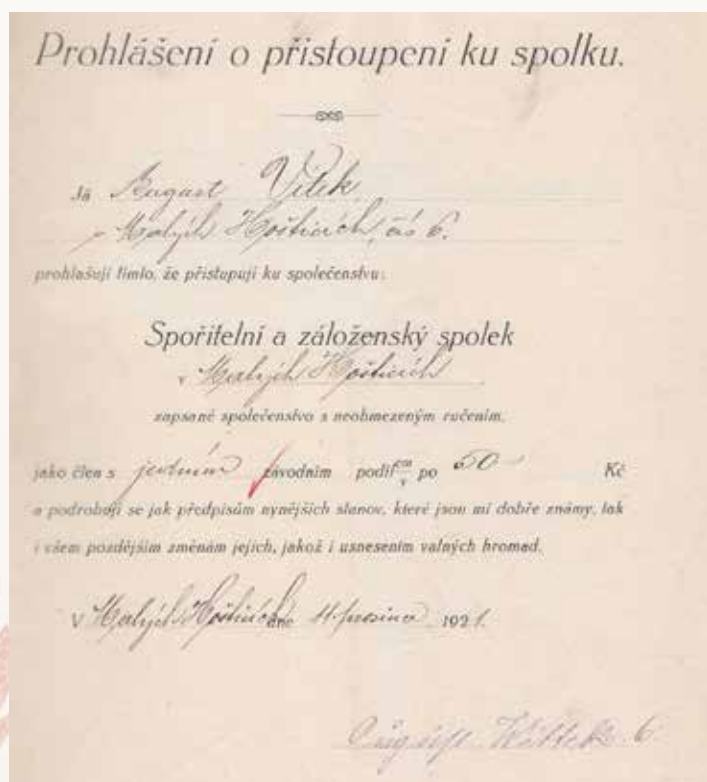 Prohlášení o přistoupení ku spolku.
Já August Vitek
v Malých Hošticích, čís 6.
prohlašuji tímto, že přistupuji ku společenstvu:
Spořitelní a záloženský spolek
v Malých Hošticích
zapsané společenstvo s neobmezeným ručením,
jako člen s jedním závodním podíl em/y po 50 Kč
a podrobuji se jak předpisům nynějších stanov, které jsou mi dobře známy, tak
i všem pozdějším změnám jejich, jakož i usnesením valných hromad.
V Malých Hošticích dne 11. prosince 1921.
August Wittek 6